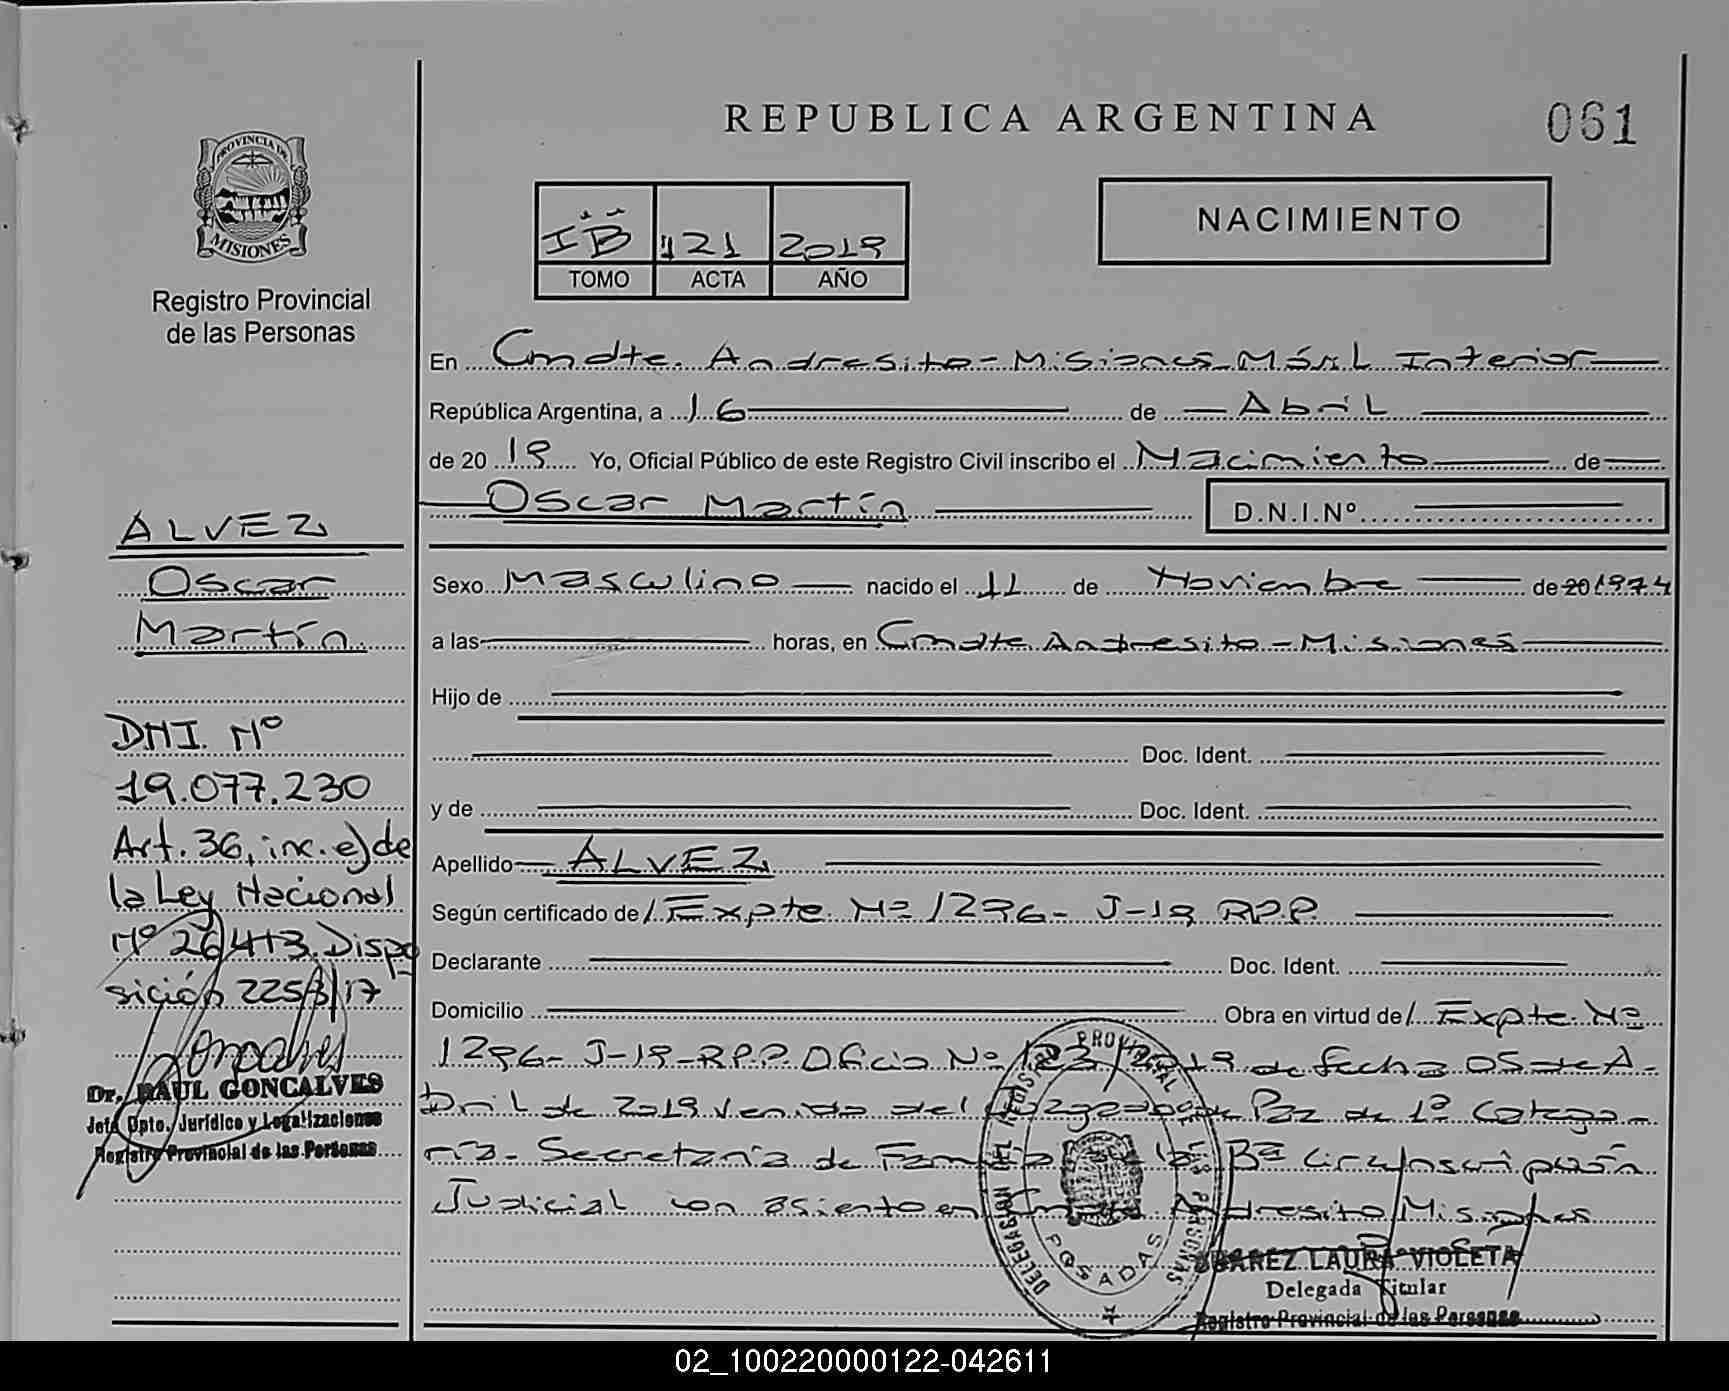 REPUBLICA ARGENTINA
061
PROVINCIA DE
MISIONES
Registro Provincial
de las Personas
NACIMIENTO
IB 121 2019
TOMO ACTA AÑO
En Cmdte. Andresito - Misiones Móvil Interior
República Argentina, a 16 de Abril
de 2019 Yo, Oficial Público de este Registro Civil inscribo el Nacimiento de
Oscar Martín
D.N.I.Nº
Sexo Masculino nacido el 11 de Noviembre de 20 1974
a las horas, en Cmdte. Andresito - Misiones
Hijo de
Doc. Ident.
y de Doc. Ident.
Apellido ALVEZ
Según certificado de / Expte Nº 1296 - J-19 RPP
Declarante Doc. Ident.
Domicilio Obra en virtud de / Expte. Nº
1296- J-19-R.P.P. Oficio Nº 2019 de fecha 05 de A-
bril de 2019 venido del Juzgado de Paz de 1º Catego-
ría - Secretaría de Familia de la 3ª Circunscripción
Judicial con asiento en Cmdte. Andresito Misiones
ALVEZ
Oscar
Martín
DNI. Nº
19.077.230
Art. 36, inc. e) de
la Ley Nacional
Nº 26.413. Dispo
sición 2258/17
Dr. RAUL GONCALVES
Jefe Dpto. Jurídico y Legalizaciones
Registro Provincial de las Personas
DELEGACION DEL REGISTRO PROVINCIAL DE LAS PERSONAS
POSADAS
LAURA VIOLETA
Delegada Titular
Registro Provincial de las Personas
02_100220000122-042611